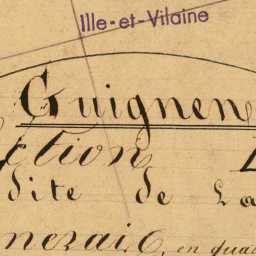 Ille-et-Vilaine
Guignen
ction
dite de La
neraie, en qua